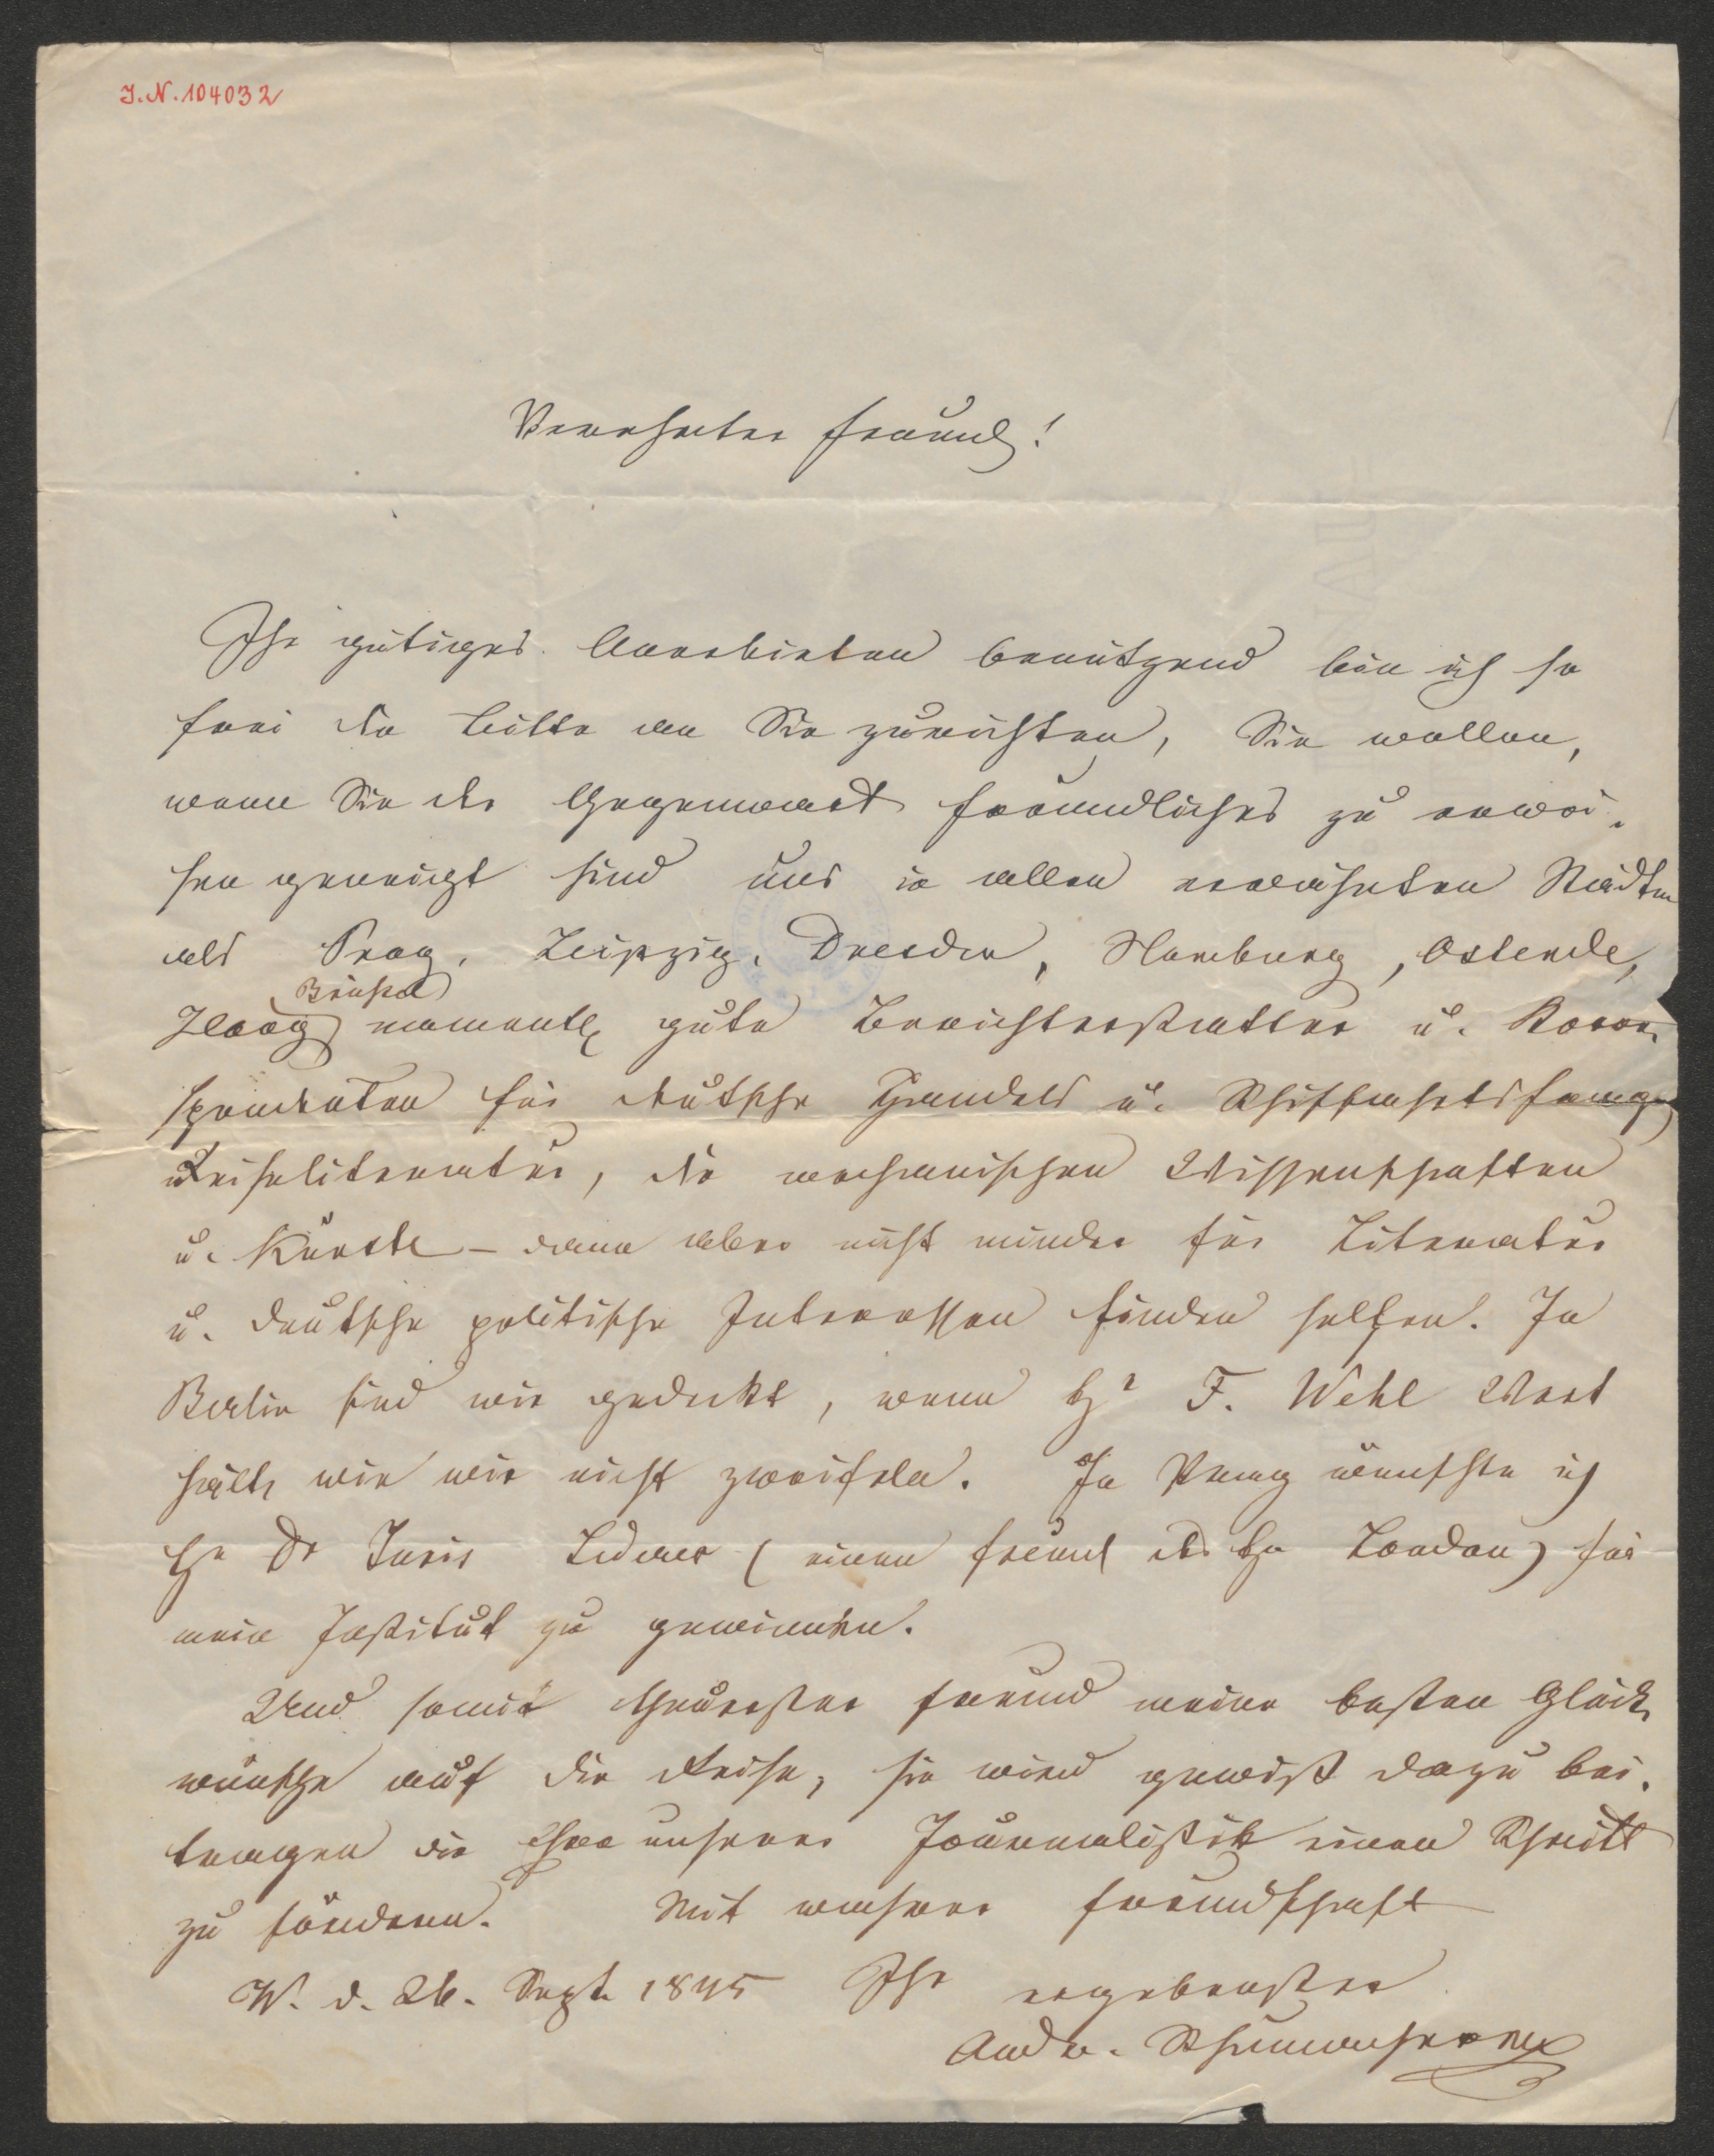 I.N. 104032
Verehrter Freund!
Ihr gütiges Anerbieten benützend bin ich so
frei die Bitte an Sie zu richten, Sie wollen,
wenn Sie der Gegenwart freundliches zu erwei-
sen geneigt sind uns in allen erwähnten Städten
als Prag, Leipzig, Dresden, Hamburg, Ostende,
Brüssel
Haag namentl gute Berichterstatter u. Korre-
spondenten für deutsche Handels u. Schifffahrtsfragen
Reiseliteratur, die mechanischen Wissenschaften
u. Künste – dann aber nicht minder für Literatur
u. deutsche politische Interessen finden helfen. In
Berlin sind wir gedeckt, wenn Hr F. Wehl Wort
hält, wie wir nicht zweifeln. In Prag wünschte ich
Hr Dr Juris (einen Freund des Hr Landau) für
mein Institut zu gewinnen.
Und somit theuerster Freund meine besten Glück-
wünsche auf die Reise, sie wird gewiß dazu bei-
tragen die Ehre unserer Journalistik einen Schritt
zu fördern. Mit wahrer Freundschaft
W. d. 26. Sept. 1845 Ihr ergebenster
Andr. Schumacher